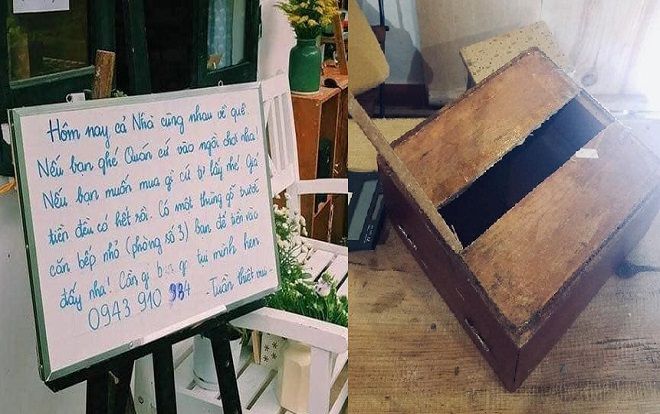 Hôm nay cả Nhà cùng nhau về quê.
Nếu bạn ghé Quán cứ vào ngồi chơi nha!
Nếu bạn muốn mua gì cứ tự lấy nhé! Giá
tiền đều có hết rồi. Có một thùng gỗ trước
căn bếp nhỏ (phòng số 3) bạn để tiền vào
đấy nha! Cần gì bạn gọi tụi mình hen
0943 910 984 -Tuần thiết mu-